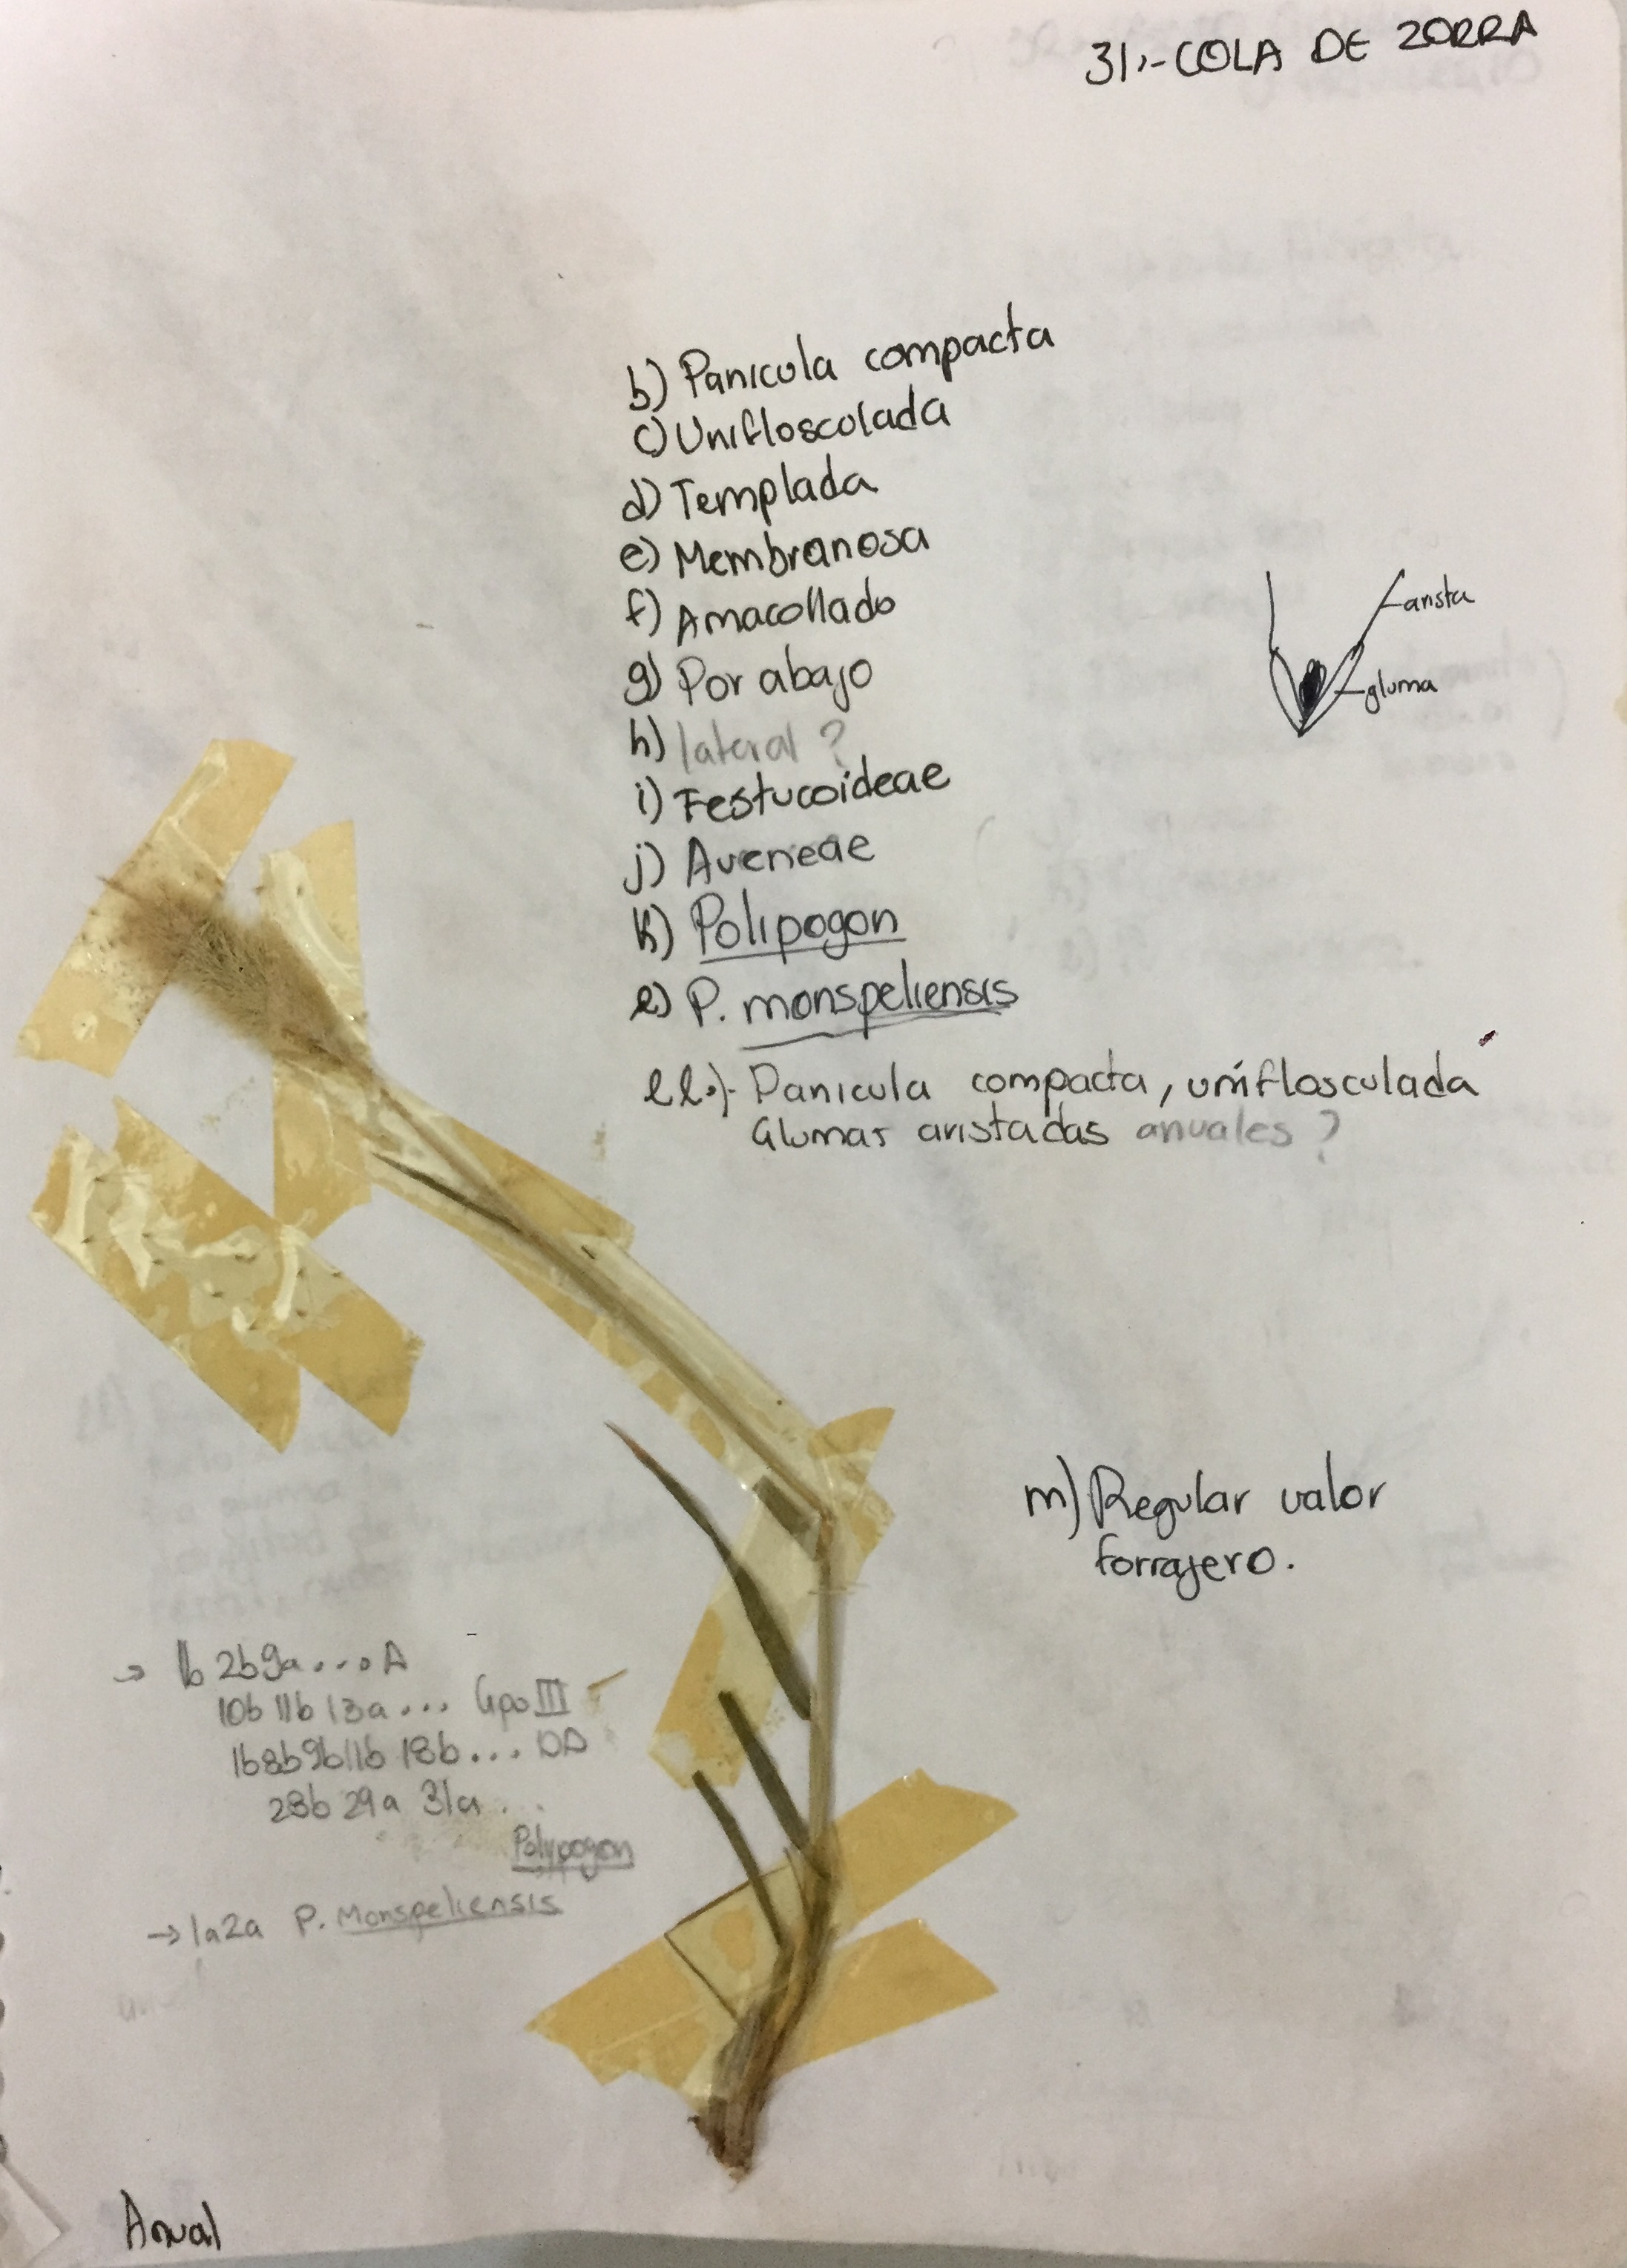 31.-COLA DE ZORRA
b) Panicula compacta
c) Unifloscolada
d) Templada
e) Membranosa
f) Amacollado
g) Por abajo
h) lateral ?
i) Festucoideae
j) Aveneae
k) Polipogon
l) P. monspeliensis
ll.)- Panicula compacta, uniflosculada
Glumas aristadas anuales ?
arista
gluma
m) Regular valor
forrajero.
→ 1b 2b9a...A
10b 11b 13a... Gpo III
1b8b9b11b 18b... DD
28b 29a 31a..
Polypogon
→ 1a2a P. Monspeliensis
Anual